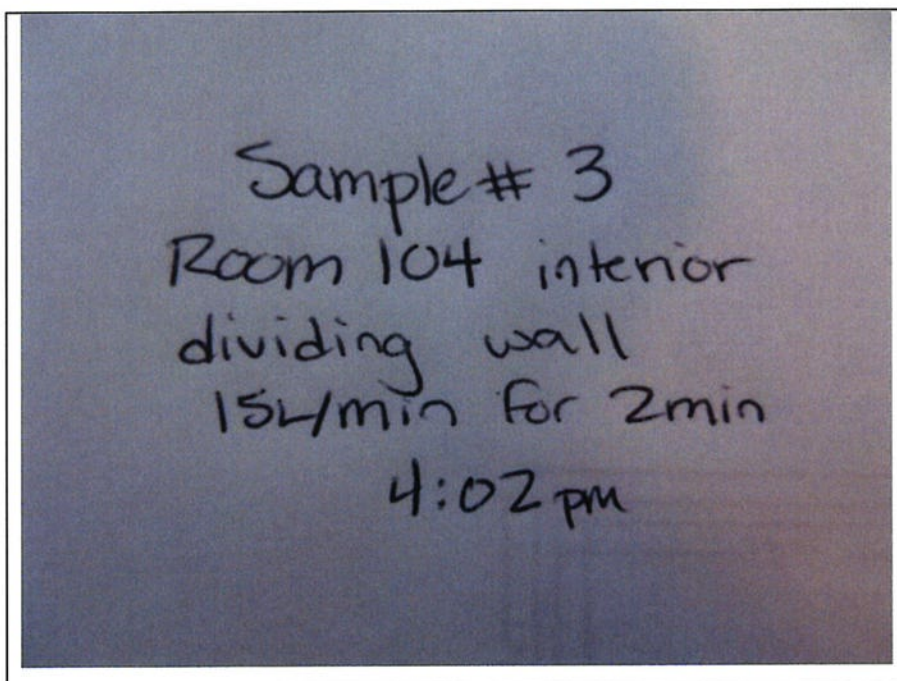 Sample # 3
Room 104 interior
dividing wall
15L/min for 2min
4:02 pm